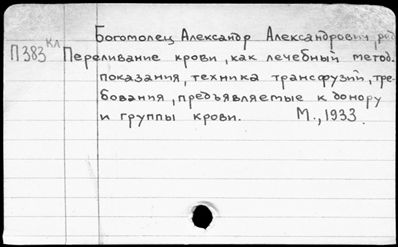 Богомолец Александр Александрович, ред.
П383 кл Переливание крови, как лечебный метод.
показания, техника трансфузий, тре-
бования, предъявляемые к донору
и группы крови. М., 1933.